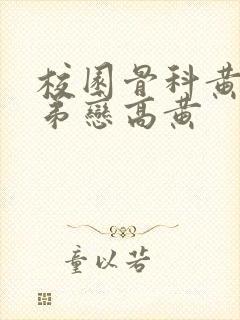 校園骨科黃
弟戀高黃
童以若